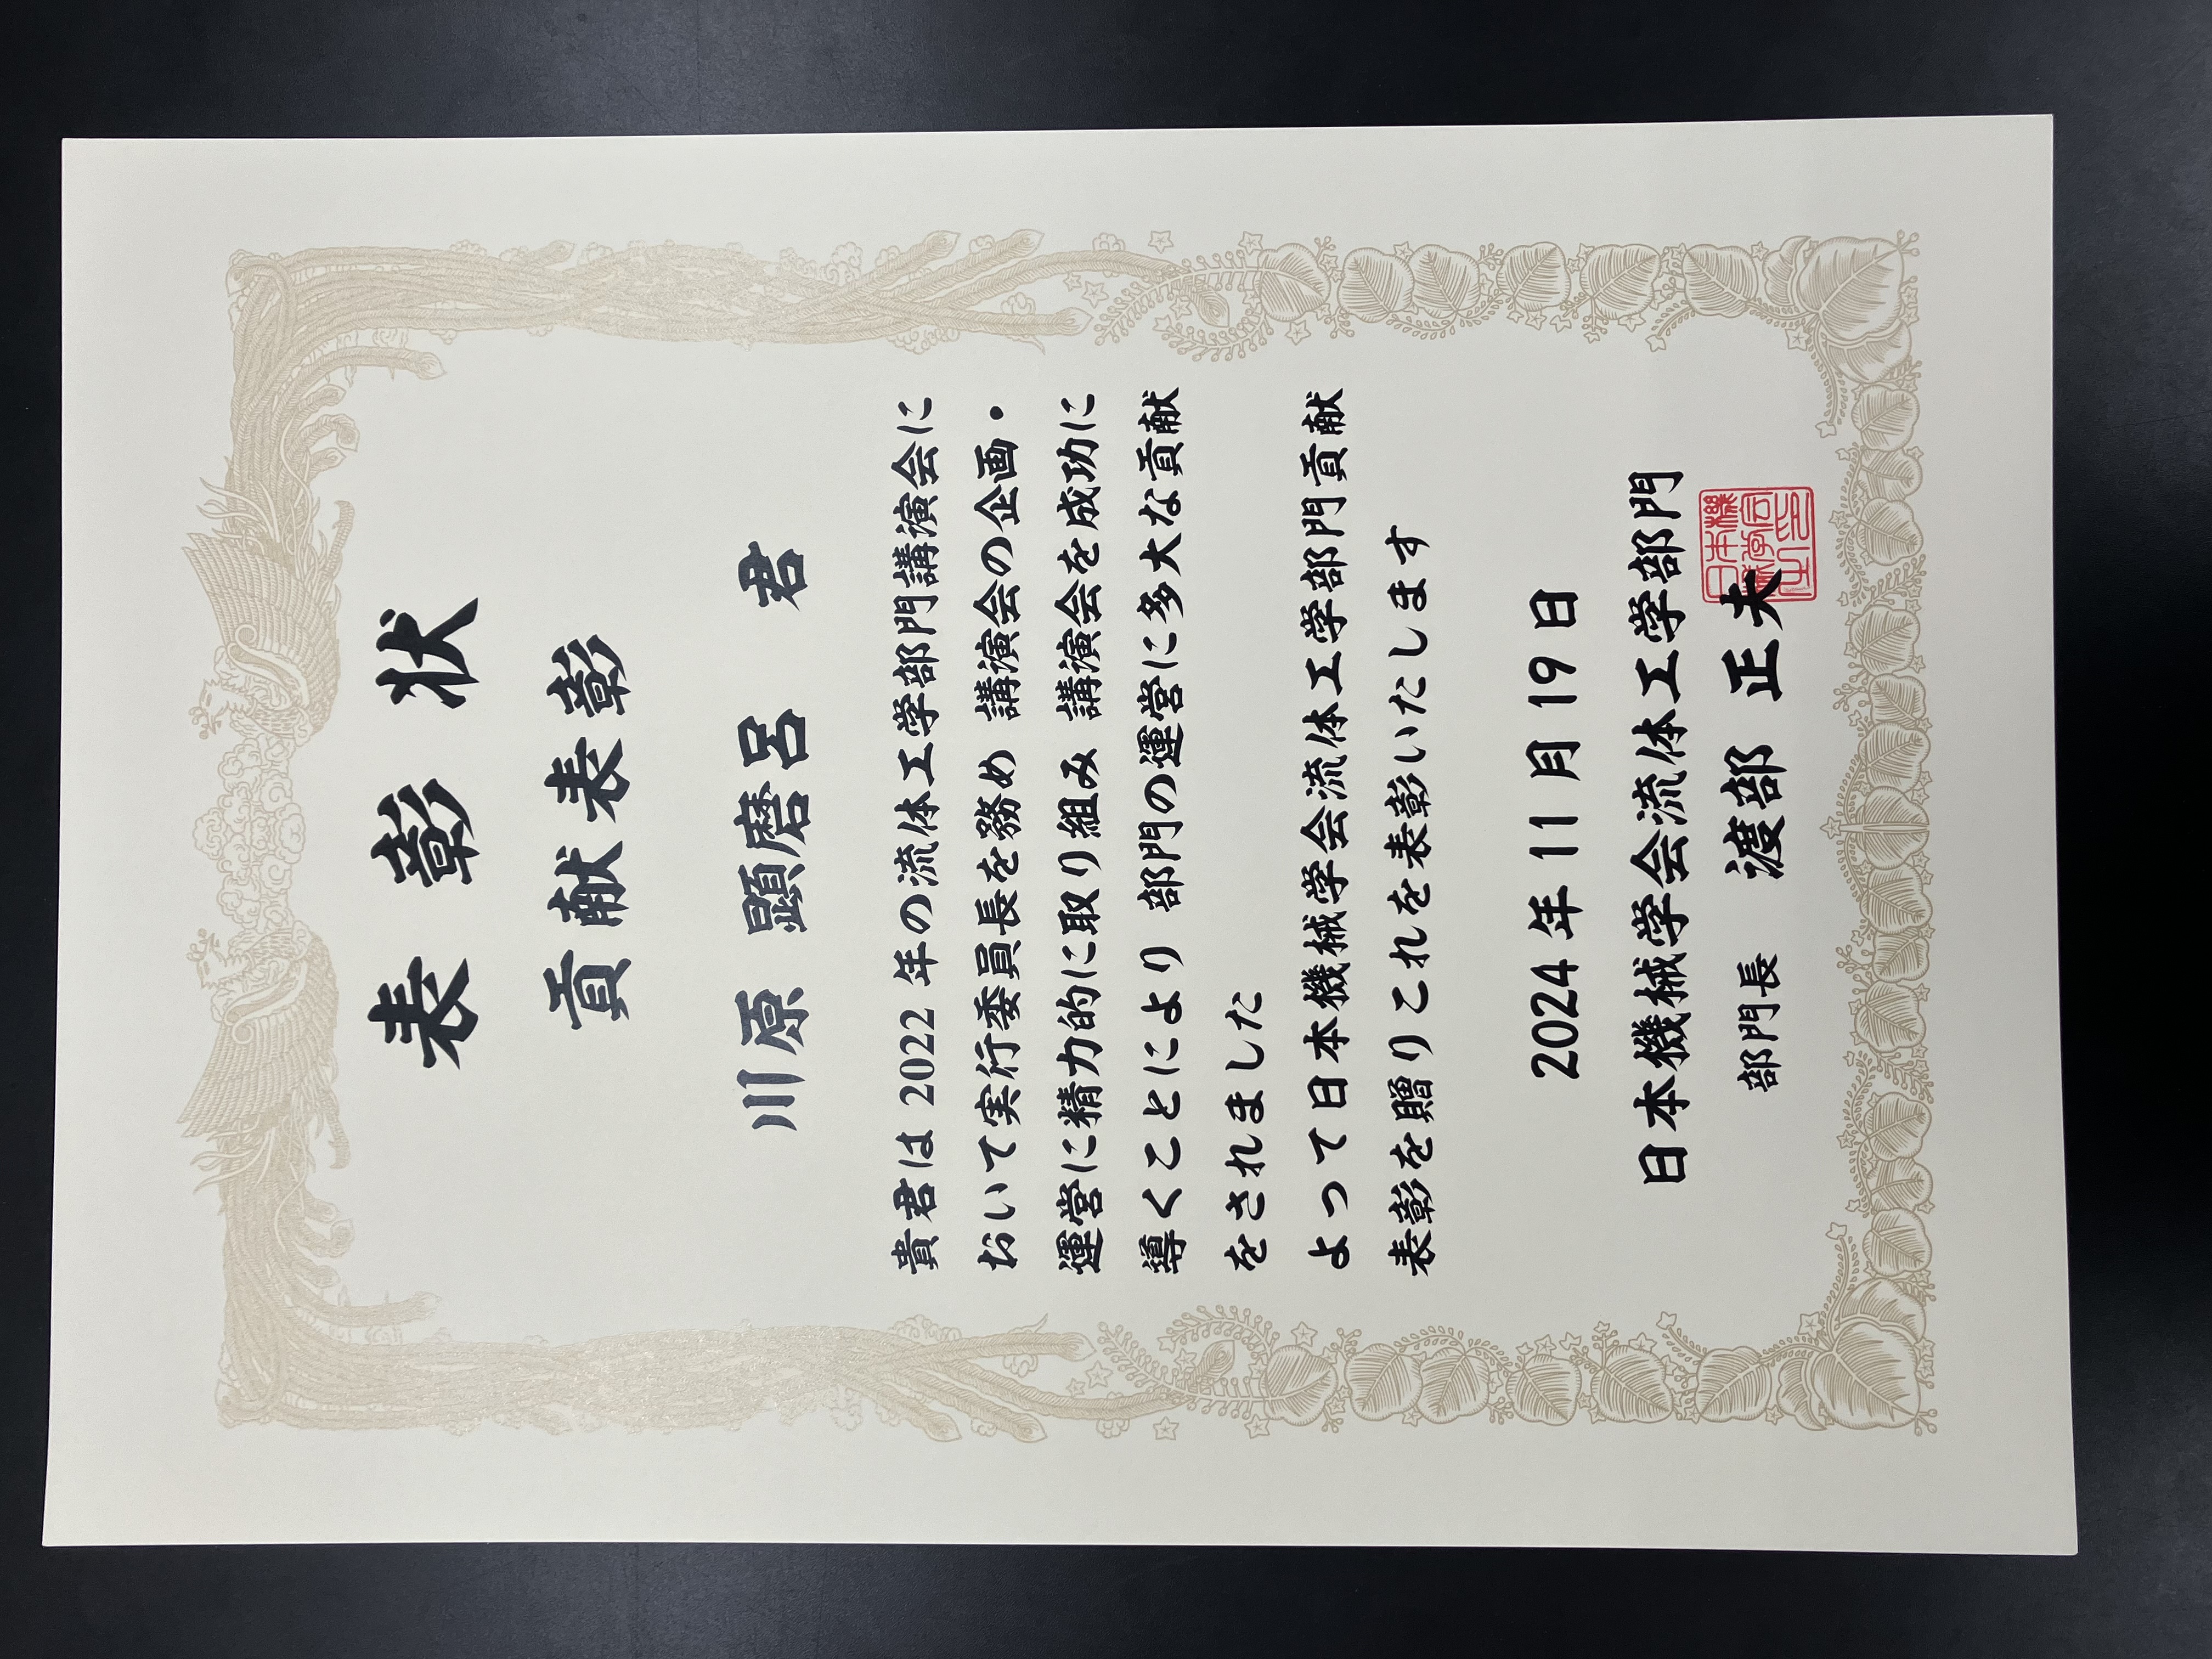 表彰状
貢献表彰
川原 顕磨呂 君
貴君は 2022 年の流体工学部門講演会に
おいて実行委員長を務め 講演会の企画・
運営に精力的に取り組み 講演会を成功に
導くことにより 部門の運営に多大な貢献
をされました
よって日本機械学会流体工学部門貢献
表彰を贈りこれを表彰いたします
2024 年 11 月 19 日
日本機械学会流体工学部門
部門長 渡部 正夫